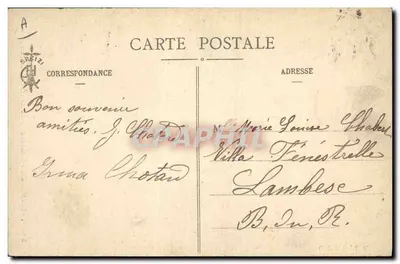 A
CARTE POSTALE
BREIZ
CORRESPONDANCE
ADRESSE
Bon souvenir
amitiés. J. Chotard
Irma Chotard
Marie Louise Chabert
Villa Fénestrelle
Lambesc
B. du. R.
CPAPHIL